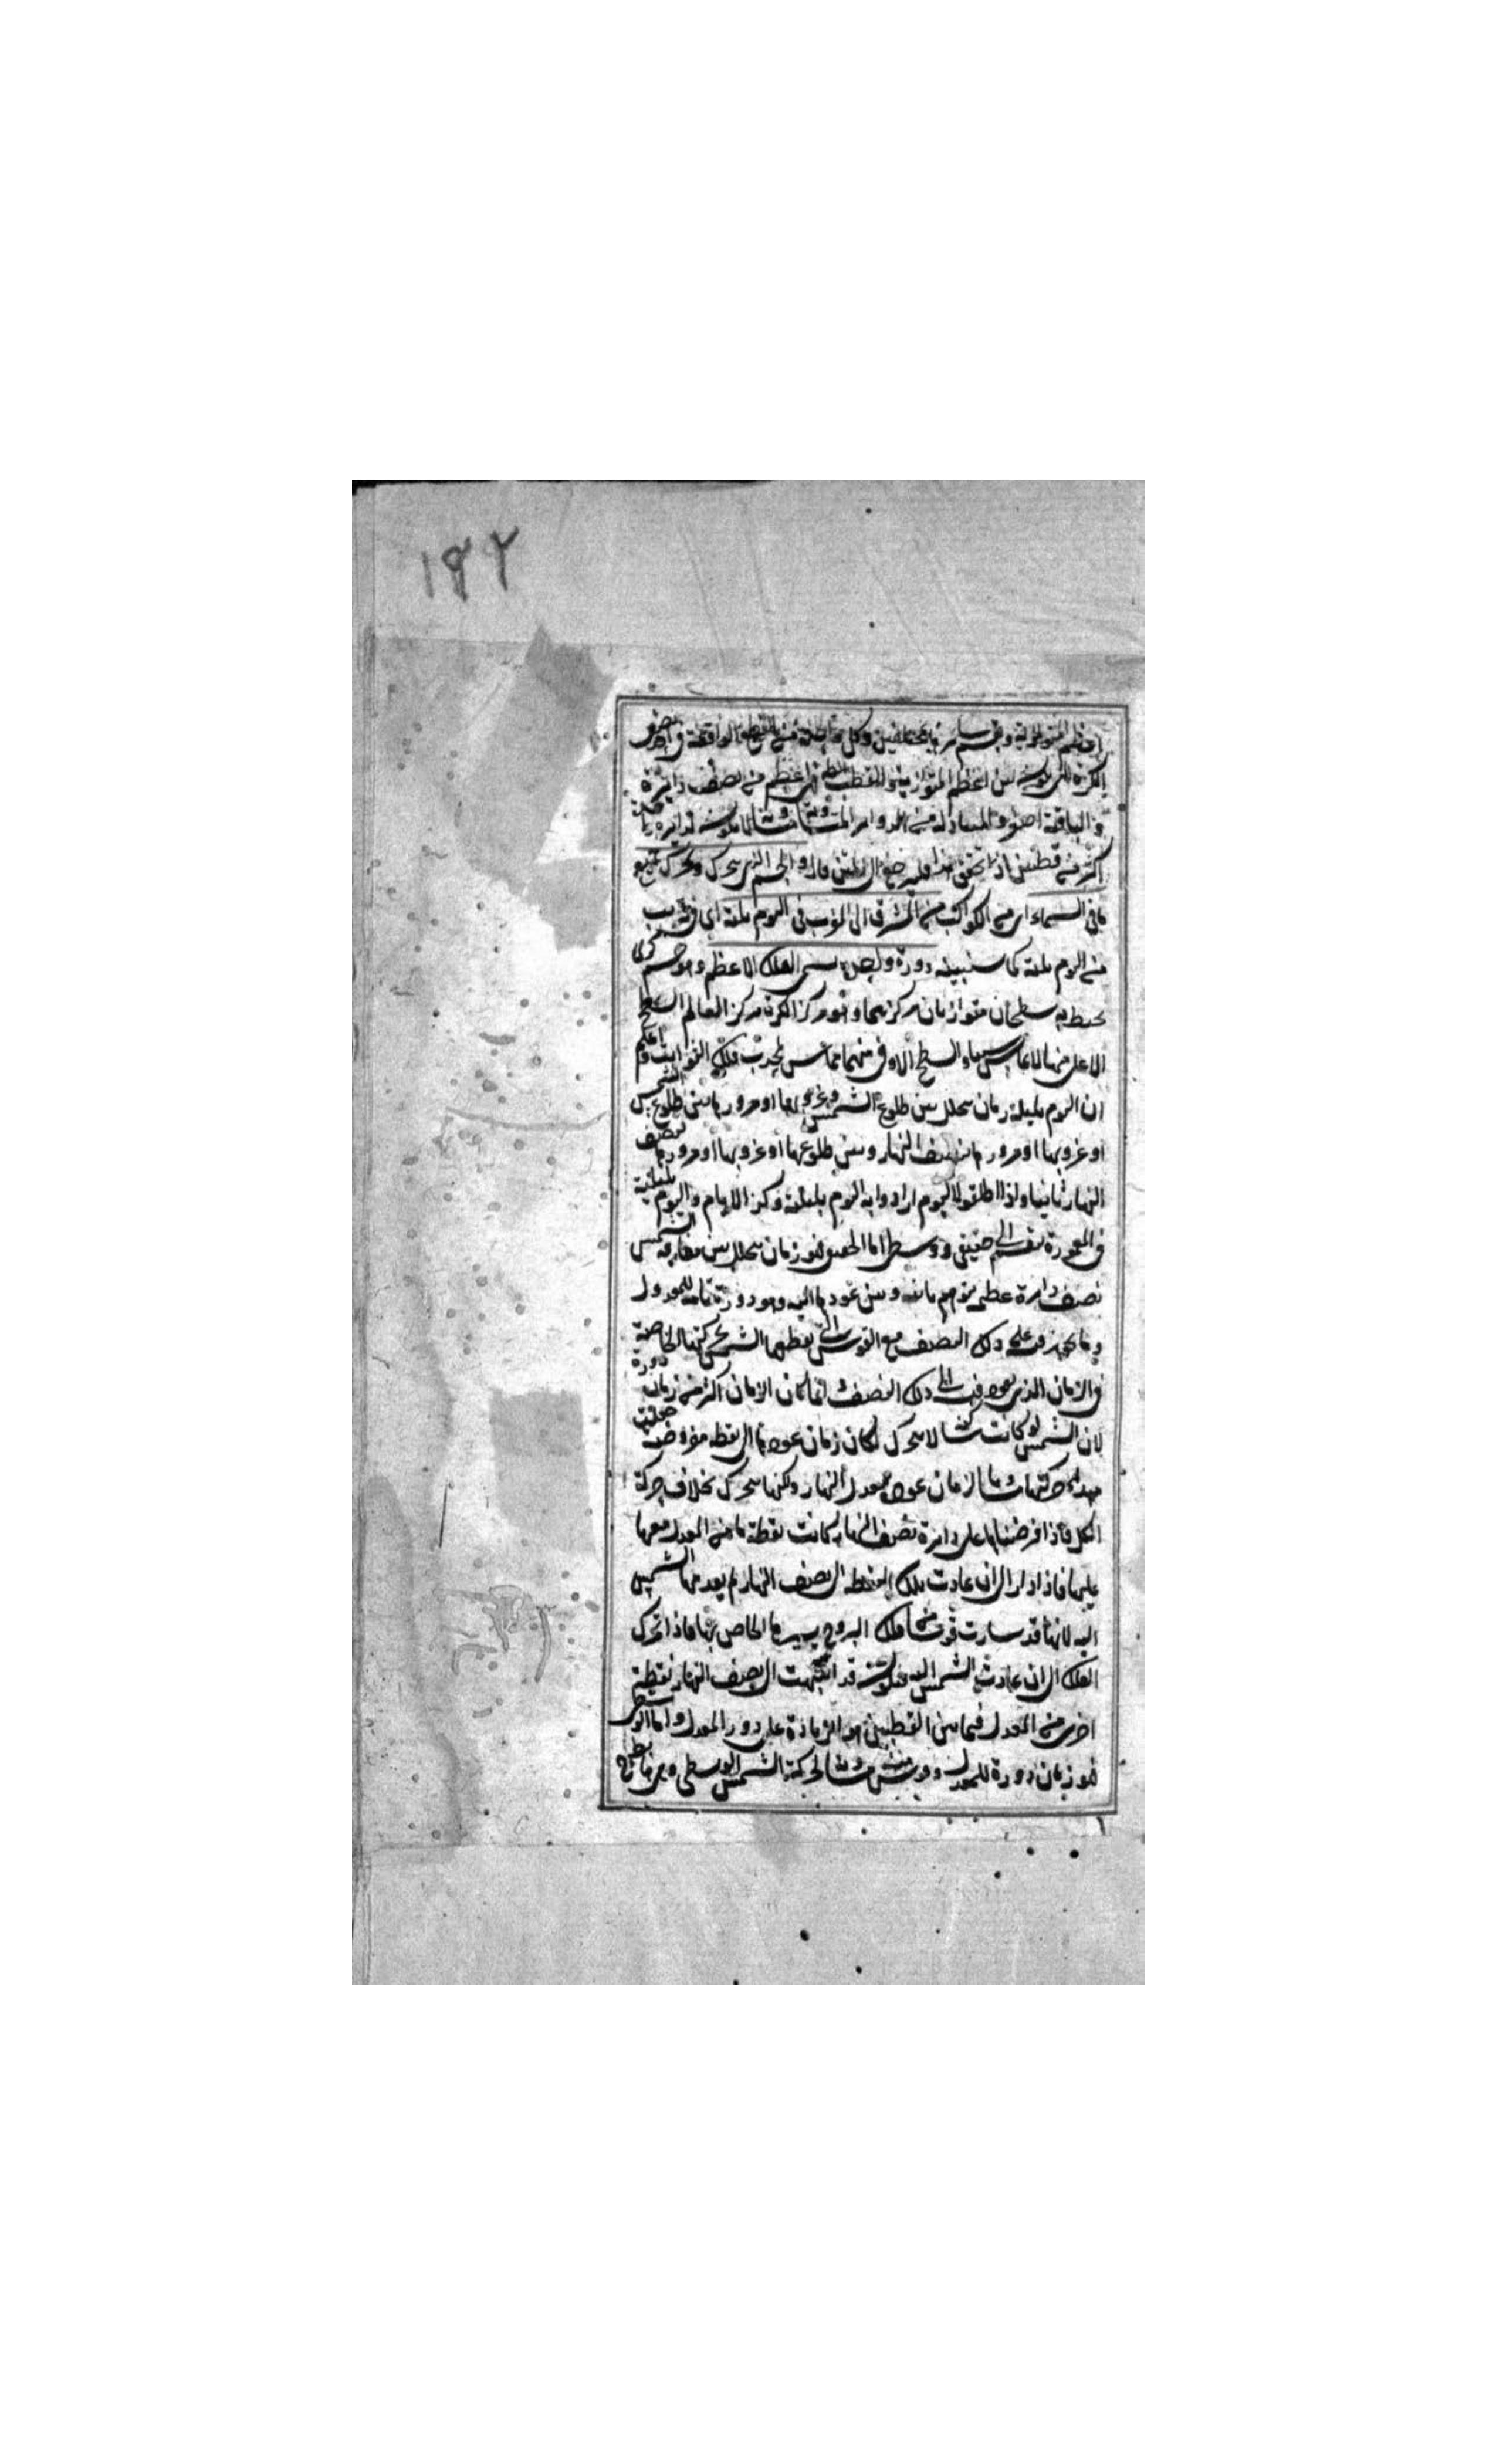 ١٢٢
اعظم المتوازية وينقسم بنصفين وكل واحدة من القطع الواقعة في
الكرة التي يكون بين اعظم المتوازية والقطب اعظم من نصف دائرة
والباقية اصغر والمتبادلة من الدوائر المتساوية متساوية لا يكون لدائرة
اكثر من قطبين اذا تحقق هذا فليرجع الى المتن قال والجسم الذي يتحرك ويحرك جميع
ما في السماء اي من الكواكب من المشرق الى المغرب في اليوم بليلته اي في قريب
من اليوم بليلته كما سنبينه دورة واحدة يسمى الفلك الاعظم وهو جسم كرى
يحيط به سطحان متوازيان مركزهما وهو مركز الكرة مركز العالم السطح
الاعلى منهما لا يماس شيا والسطح الادنى منهما مماس لمحدب فلك الثوابت واعلم
ان اليوم بليلته زمان يتخلل بين طلوع الشمس وغروبها او مرورها بين طلوع الشمس
او غروبها او مرورها بنصف النهار وبين طلوعها او غروبها او مرورها بنصف
النهار ثانيا واذا اطلقوا اليوم ارادوا به اليوم بليلته وكذا الايام واليوم بليلته
في المعمورة ينقسم الى حقيقي ووسطي اما الحقيقي فهو زمان يتخلل بين مفارقة الشمس
نصف دائرة عظيمة يتوهم ثابتة وبين عودها اليه وهو دورة تامة للمعدل
وما يجوز فيه على ذلك النصف مع القوس التي تقطعها الشمس بحركتها الخاصة
في الزمان الذي يعود فيه الى ذلك النصف وانما كان الزمان اكثر من زمان دورة
لان الشمس لو كانت ساكنة لا يتحرك لكان زمان عودها الى نقطة مفروضة جعلت
مبداء حركتها مساويا لزمان عود معدل النهار ولكنها يتحرك بخلاف حركة
الكل فاذا فرضناها على دائرة نصف النهار كانت نقطة ما من المعدل معها
عليها فاذا دار الى ان عادت تلك النقطة الى نصف النهار لم يعد معها الشمس
اليه لانها قد سارت قوسا من فلك البروج بسيرها الخاص بها فاذا تحرك
الفلك الى ان عادت الشمس اليه فيكون قد انتهت الى نصف النهار نقطة
اخرى من المعدل فيما بين النقطتين هو الزيادة على دور المعدل واما الوسطي
فهو زمان دورة للمعدل وقوس منه مساوية لحركة الشمس الوسطى وهي